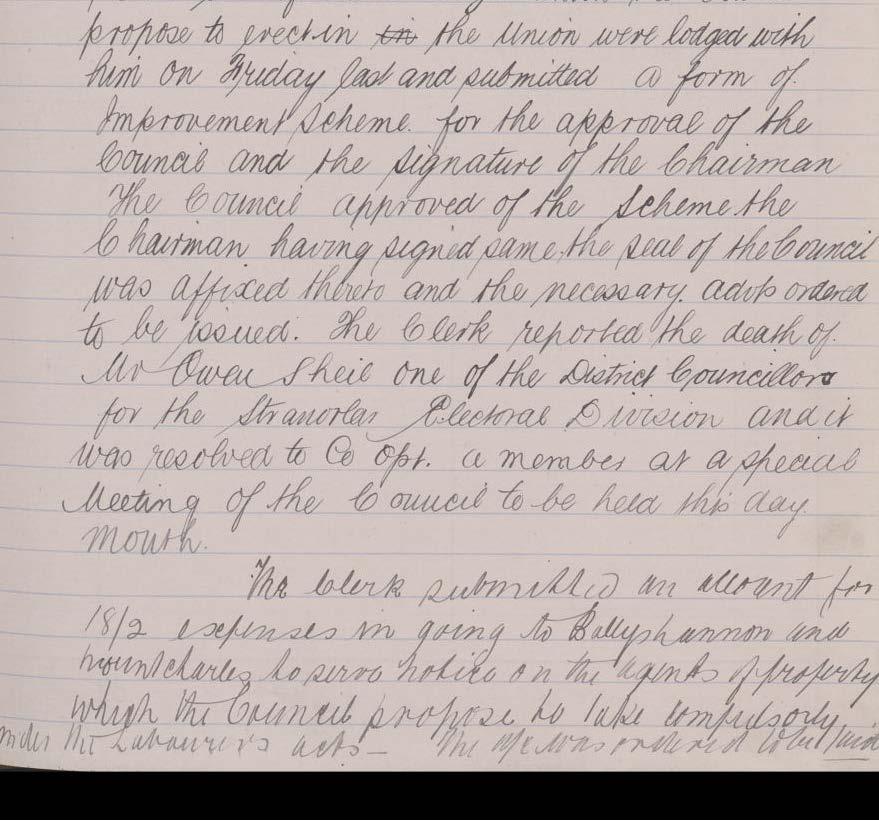 propose to erect in in the Union were lodged with
him on Friday last and submitted a form of
Improvement Scheme. for the approval of the
Council and the signature of the Chairman
The Council approved of the Scheme the
Chairman having signed same, the seal of the Council
was affixed thereto and the necessary advts ordered
to be issued. The Clerk reported the death of
Mr Owen Sheil one of the District Councillors
for the Stranorlar Electoral Division and it
was resolved to Co opt. a member at a special
Meeting of the Council to be held this day
month.
The Clerk submitted an account for
18/2 expenses in going to Ballyshannon and
Mountcharles to serve notice on the agents of property
which the Council propose to take compulsorly
under the Labourers acts — The a/c was ordered to be paid